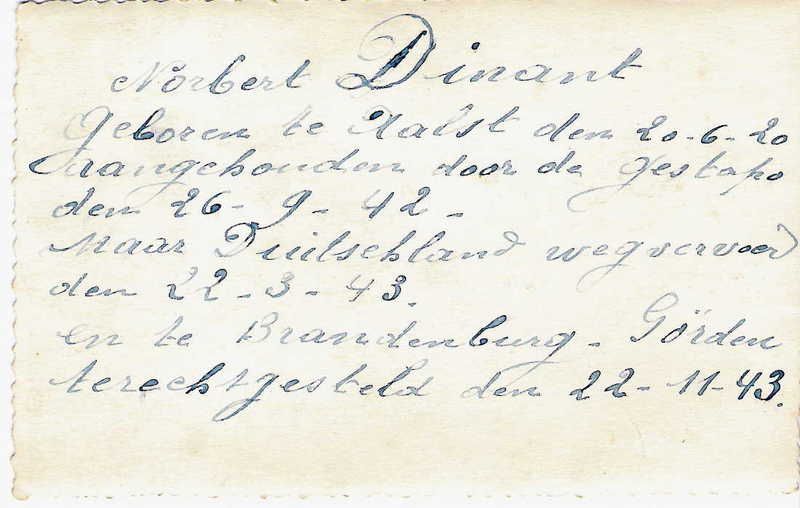 Norbert Dinant
Geboren te Aalst den 20-6-20
aangehouden door de gestapo
den 26-9-42-
Naar Duitschland wegvervoerd
den 22-3-43.
en te Brandenburg-Görden
terechtgesteld den 22-11-43.